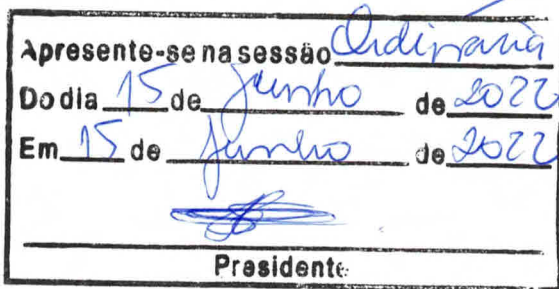 Apresente-se na sessão Ordinária
Do dia 15 de Junho de 2022
Em 15 de Junho de 2022
Presidente